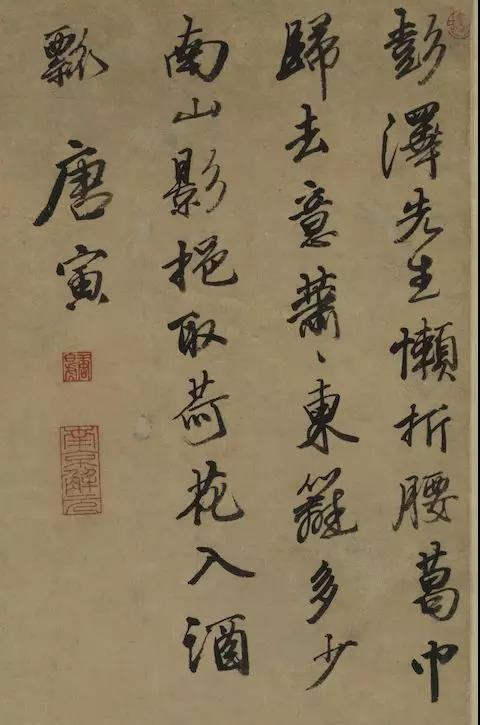 彭澤先生懶折腰葛巾
歸去意蕭〻東籬多少
南山影挹取荷花入酒
瓢 唐寅
唐伯虎
南京解元